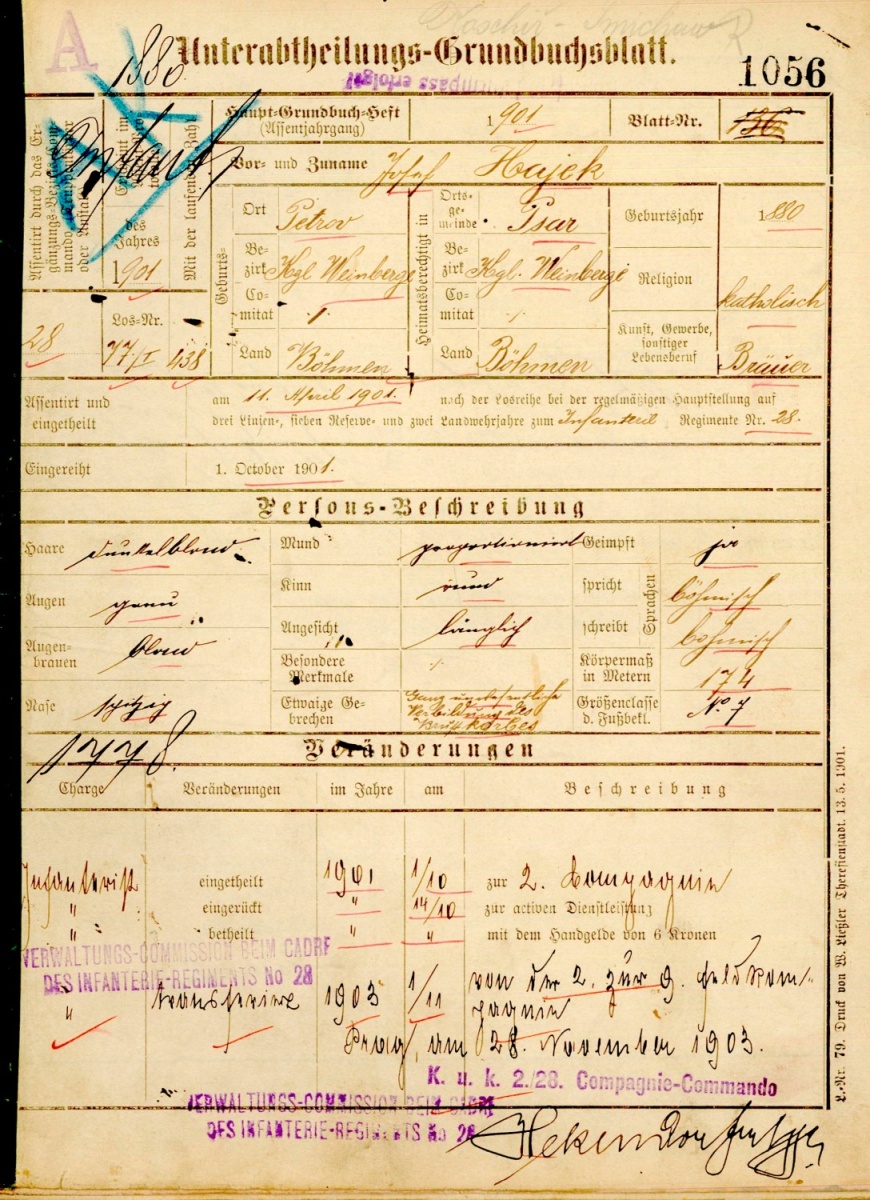 A
1880
Unterabtheilungs-Grundbuchsblatt.
1056
Haupt-Grundbuch-Heft
(Assentjahrgang)
1901
Blatt-Nr.
136
Vor- und Zuname
Josef Hajek
Assentirt durch das Ergänzungs-Bezirks-Commando
des Jahres
1901
Mit der laufenden Zahl
Los-Nr.
28
77/I
438
Geburts-
Ort
Petrov
Bezirk
Kgl Weinberge
Comitat
Land
Böhmen
Heimatsberechtigt in
Ortsgemeinde
Psar
Bezirk
Kgl. Weinberge
Comitat
Land
Böhmen
Geburtsjahr
1880
Religion
katholisch
Kunst, Gewerbe, sonstiger Lebensberuf
Bräuer
Assentirt und eingetheilt
am 11. April 1901. nach der Losreihe bei der regelmäßigen Hauptstellung auf
drei Linien-, sieben Reserve- und zwei Landwehrjahre zum Infanterie Regimente Nr. 28.
Eingereiht
1. October 1901.
Persons-Beschreibung
Haare dunkelblond
Mund proportioniert
Geimpft ja
Augen grau
Kinn rund
Sprachen
spricht böhmisch
Augenbrauen blond
Angesicht länglich
schreibt böhmisch
Besondere Merkmale
Körpermaß in Metern 174
Nase spitzig
Etwaige Gebrechen
Ganz unwesentliche
Verbildung des
Brustkorbes
Größenclasse d. Fußbekl. No 7
1778.
Veränderungen
Charge
Veränderungen
im Jahre
am
Beschreibung
Infanterist eingetheilt 1901 1/10 zur 2. Compagnie
" eingerückt " 14/10 zur activen Dienstleistung
" betheilt " " mit dem Handgelde von 6 Kronen
VERWALTUNGS-COMMISSION BEIM CADRE
DES INFANTERIE-REGIMENTS No 28
" transferirt 1903 1/11 von der 2. zur 9. Feldkom-
pagnie
Prag, am 28. November 1903.
K. u. k. 2./28. Compagnie-Commando
VERWALTUNGS-COMMISSION BEIM CADRE
DES INFANTERIE-REGIMENTS No 28
L.-Nr. 79. Druck von W. Ließler Theresienstadt. 13. 5. 1901.